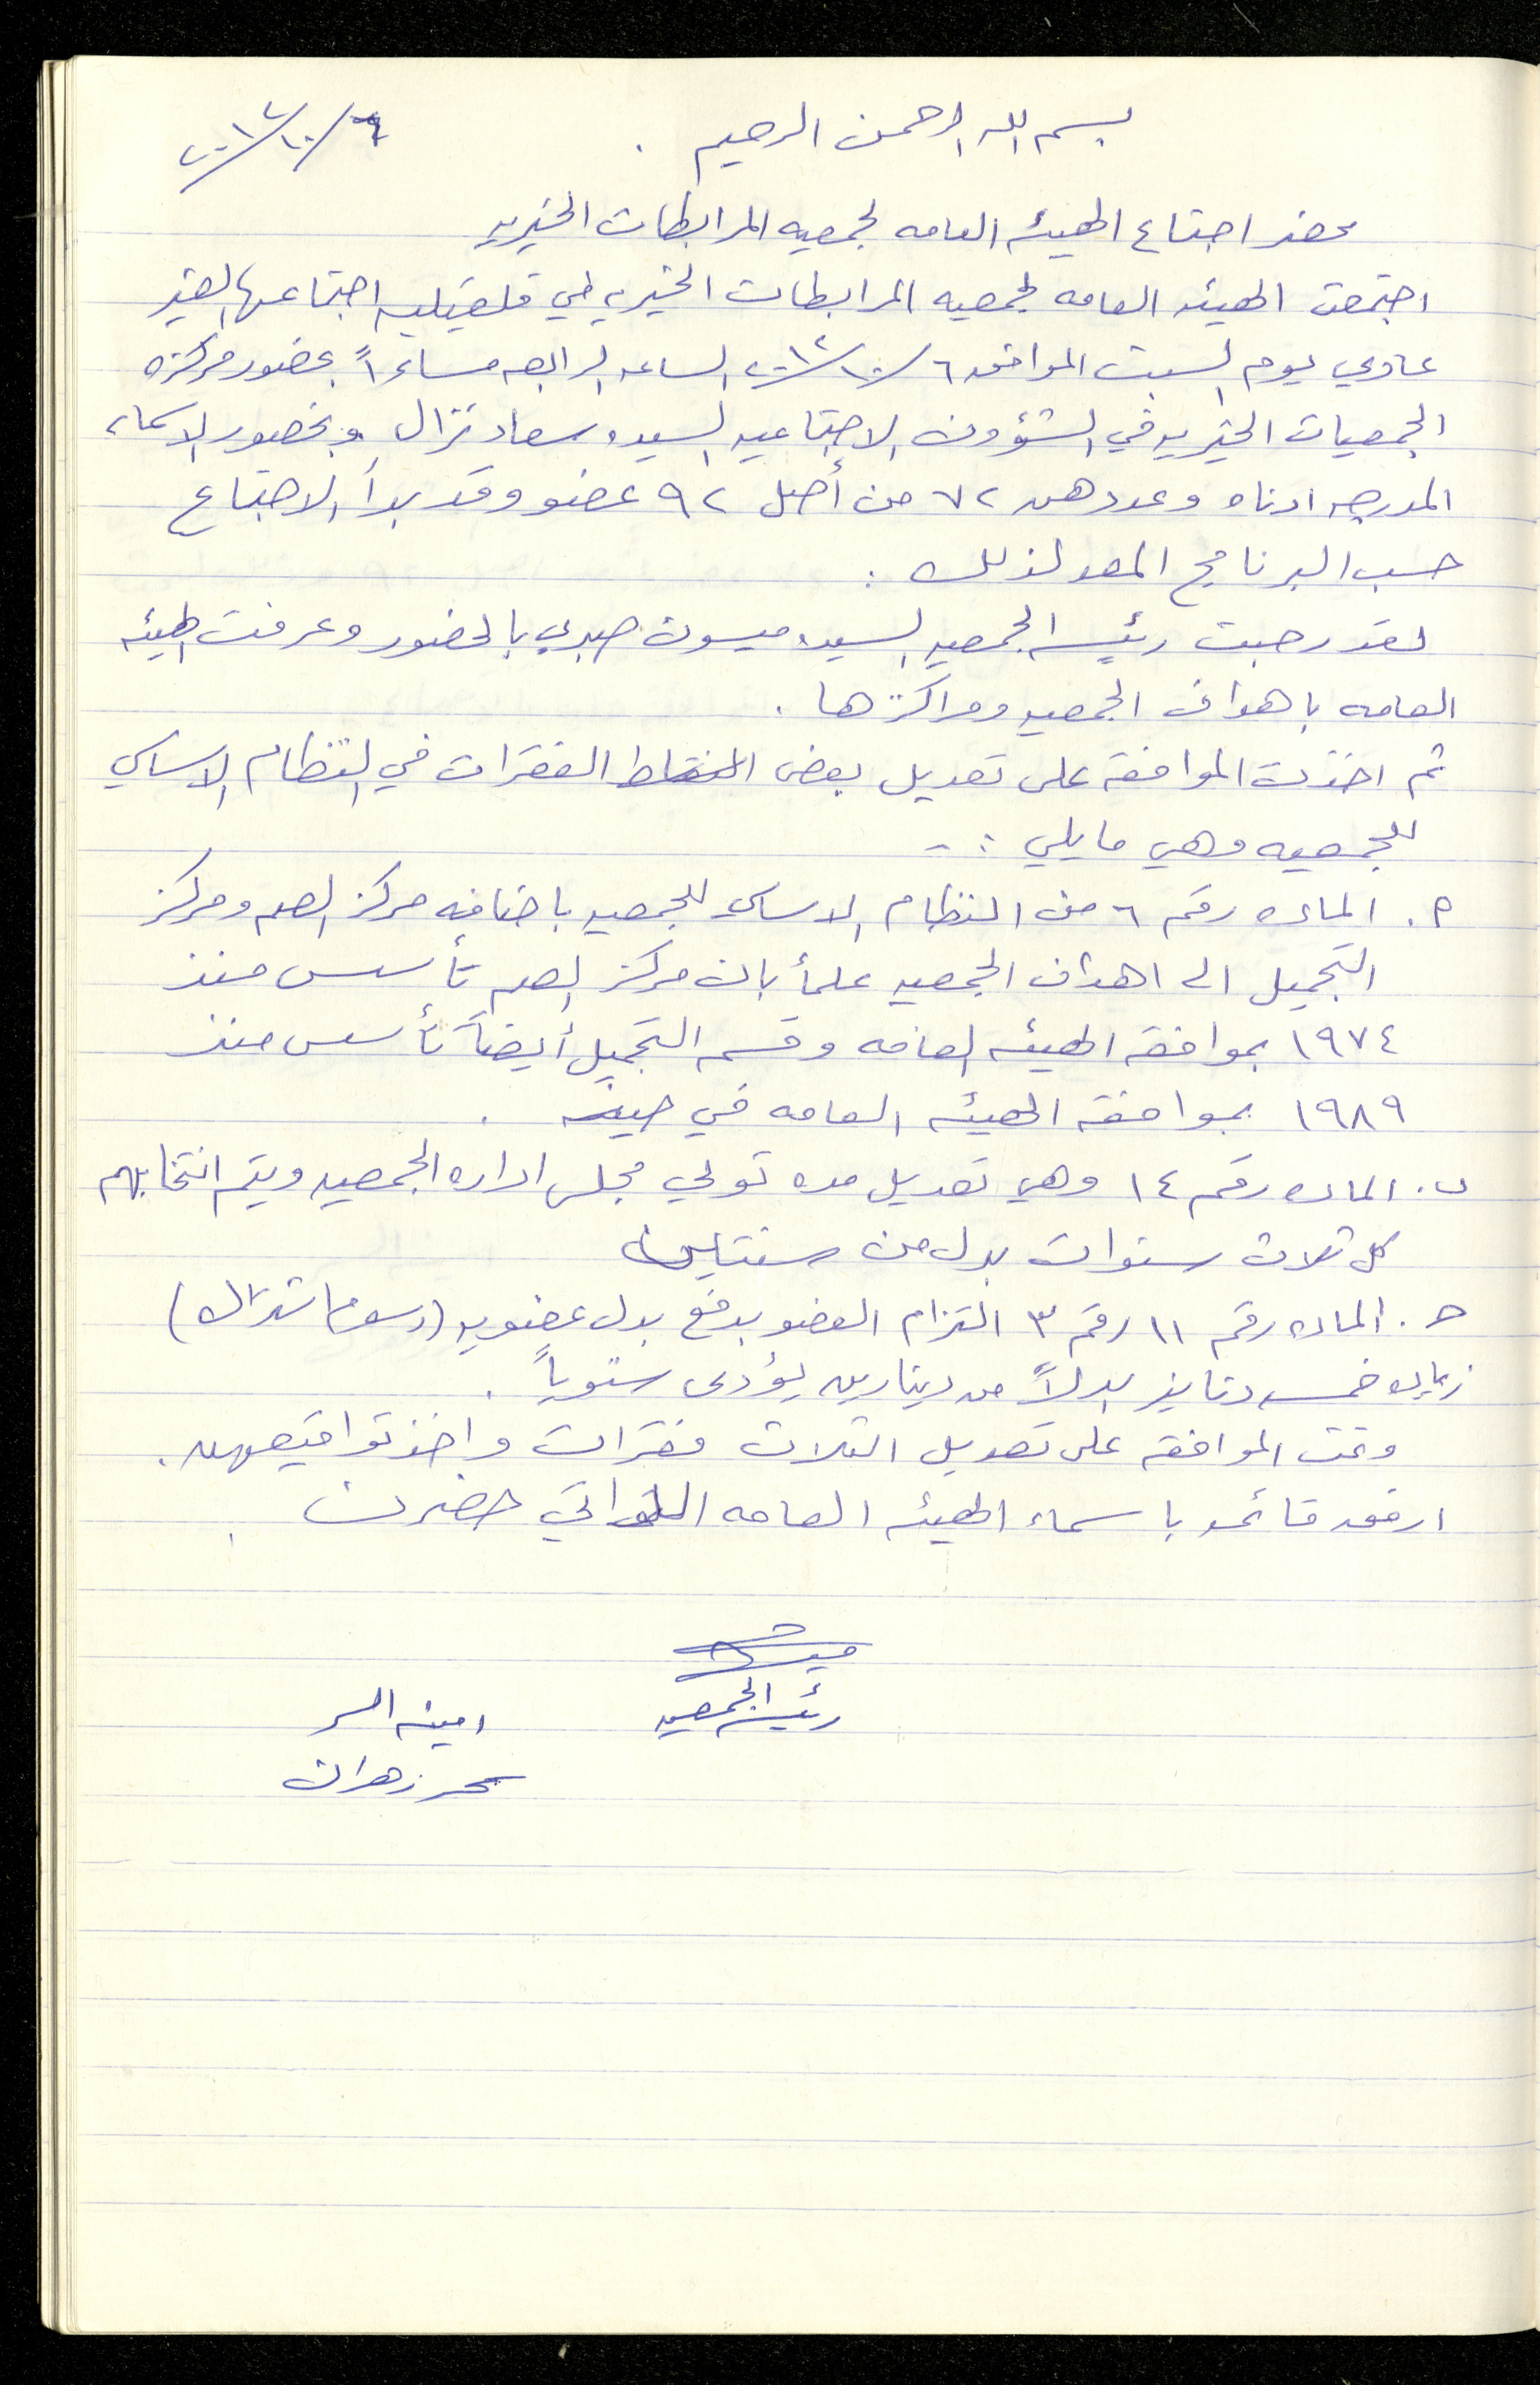 بسم الله الرحمن الرحيم . ٢٠١٢/١٠/٦
محضر اجتماع الهيئه العامه لجمعيه المرابطات الخيريه
اجتمعت الهيئه العامه لجمعيه المرابطات الخيريه في قلقيليه اجتماعها الغير
عادي يوم السبت الموافق ٢٠١٢/١٠/٦ الساعه الرابعه مساءاً بحضور مركزه
الجمعيات الخيريه في الشؤون الاجتماعيه السيده سعاد نزال وبحضور الاسماء
المدرجه ادناه وعددهن ٧٢ من أصل ٩٢ عضو وقد بدأ الاجتماع
حسب البرنامج المعد لذلك :
لقد رحبت رئيسه الجمعيه السيده ميسون صبري بالحضور وعرفت الهيئه
العامه باهداف الجمعيه ومراكزها .
ثم اخذت الموافقه على تعديل بعض النقاط الفقرات في النظام الاساسي
للجمعيه وهي مايلي : -
م . الماده رقم ٦ من النظام الاساسي للجمعيه باضافه مركز الصم ومركز
التجميل الى اهداف الجمعيه علمأ بان مركز الصم تأسس منذ
١٩٧٤ بموافقه الهيئه العامه وقسم التجميل أيضاً تأسس منذ
١٩٨٩ بموافقه الهيئه العامه في حينه .
ب . الماده رقم ١٤ وهي تعديل مده تولي مجلس اداره الجمعيه ويتم انتخابهم
كل ثلاث سنوات بدل من سنتين
ج . الماده رقم ١١ رقم ٣ التزام العضو بدفع بدل عضويه (رسوم اشتراك)
زياده خمسه دنانير بدلاً من دينارين يؤدى سنوياً .
وتمت الموافقه على تعديل الثلاث فقرات واخذ تواقيعهن .
ارفقه قائمه باسماء الهيئه العامه اللواتي حضرن .
رئيسه الجمعيه امينه السر
سحر زهران